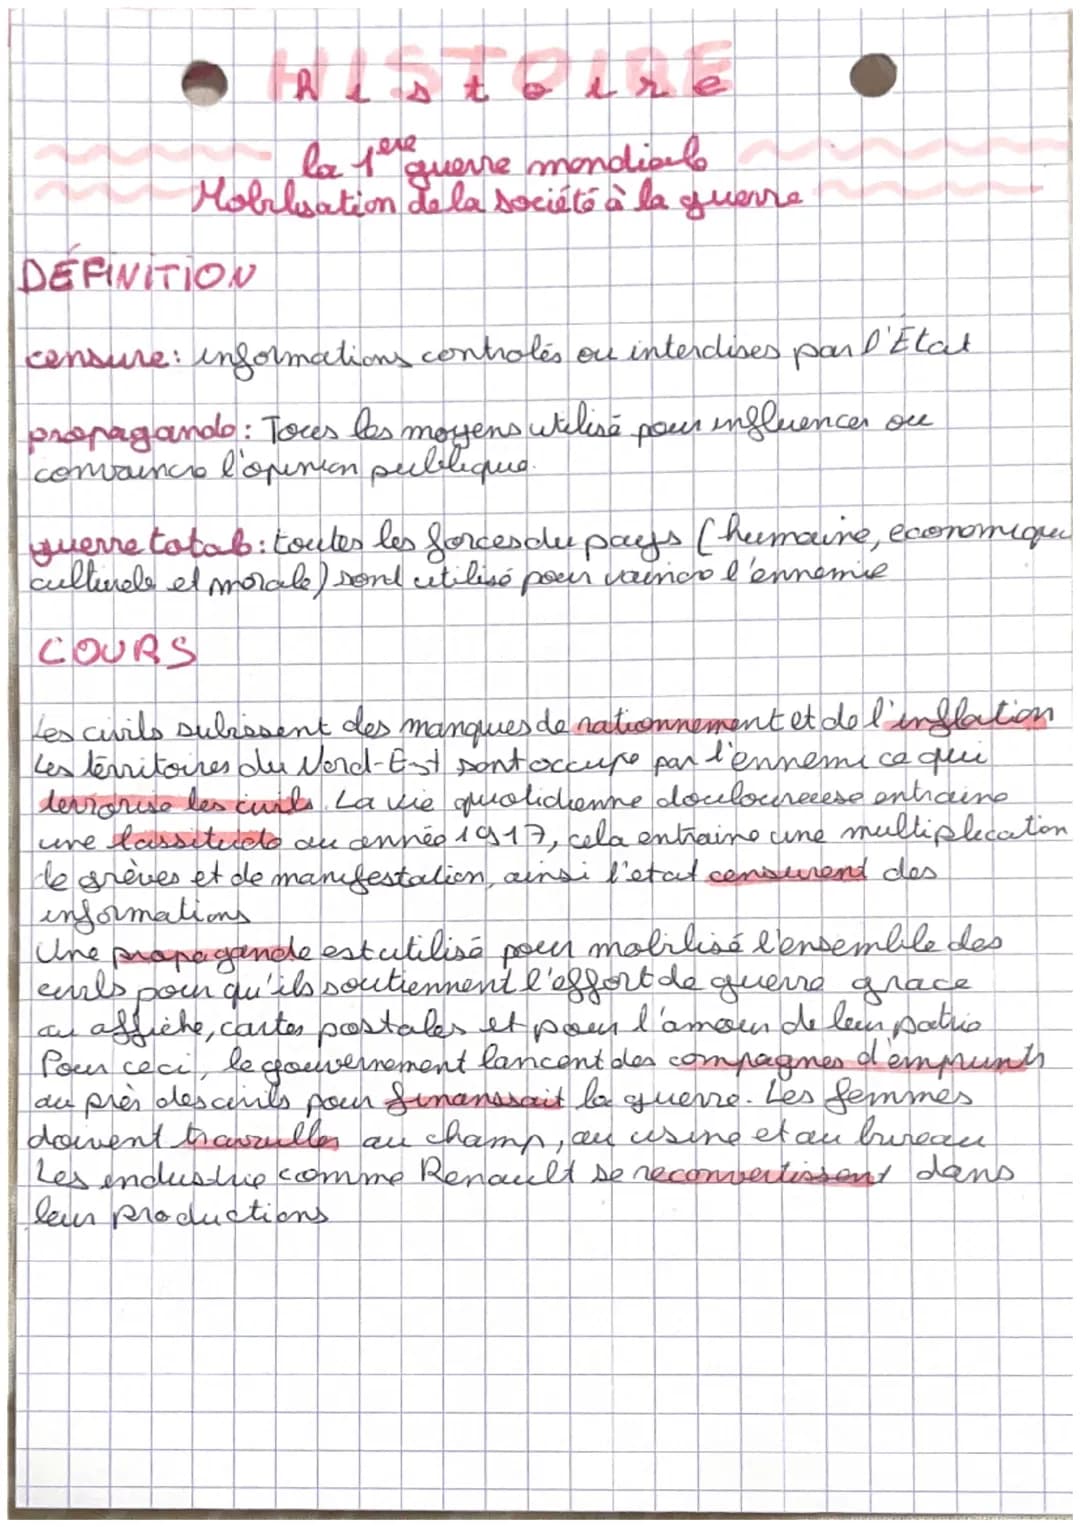 HISTOIRE
Histoire
la 1ère guerre mondiale
Mobilisation de la société à la guerre
DÉFINITION
censure: informations controlés ou interdises par l'État
propagande: Tous les moyens utilisé pour influencer ou
convaincre l'opinion publique.
guerre totale: toutes les forces du pays (humaine, economique
culturele et morale) sont utilisé pour vaincre l'ennemie
COURS
Les civils subissent des manques de rationnement et de l'inflation
Les térritoires du Nord-Est sont occupe par l'ennemi ce qui
terrorise les civils. La vie quotidienne douloureuese entraine
une lassitude au année 1917, cela entraine une multiplication
de grèves et de manifestation, ainsi l'etat censurent des
informations
Une propagande est utilisé pour mobilisé l'ensemble des
civils pour qu'ils soutiennent l'effort de guerre grace
au affiche, cartes postales et pour l'amour de leur patrie
Pour ceci, le gouvernement lancent des compagnes d'emprunts
au près des civils pour finanssait la guerre. Les femmes
doivent travailler au champ, au usine et au bureau
Les industrie comme Renault se reconvertissent dans
leur productions